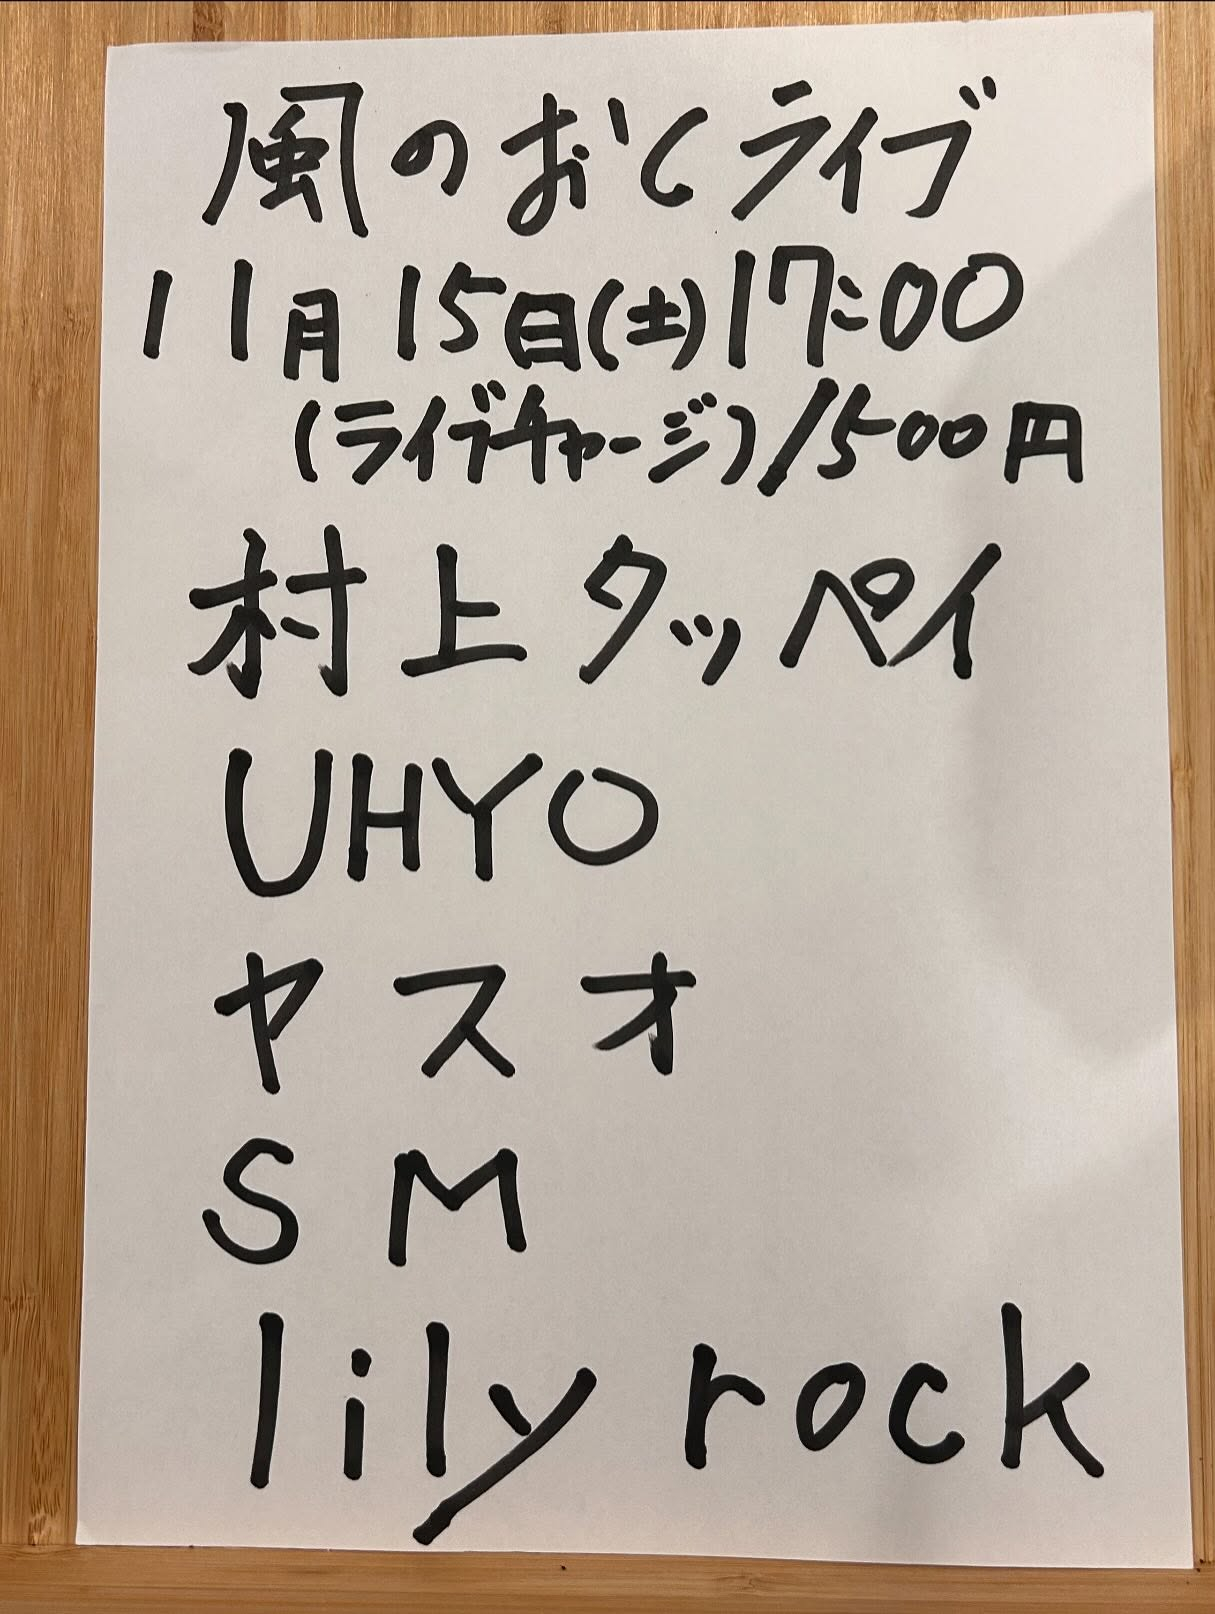 風のおとライブ
11月15日(土)17:00
(ライブチャージ)1500円
村上タッペイ
UHYO
ヤスオ
SM
lily rock